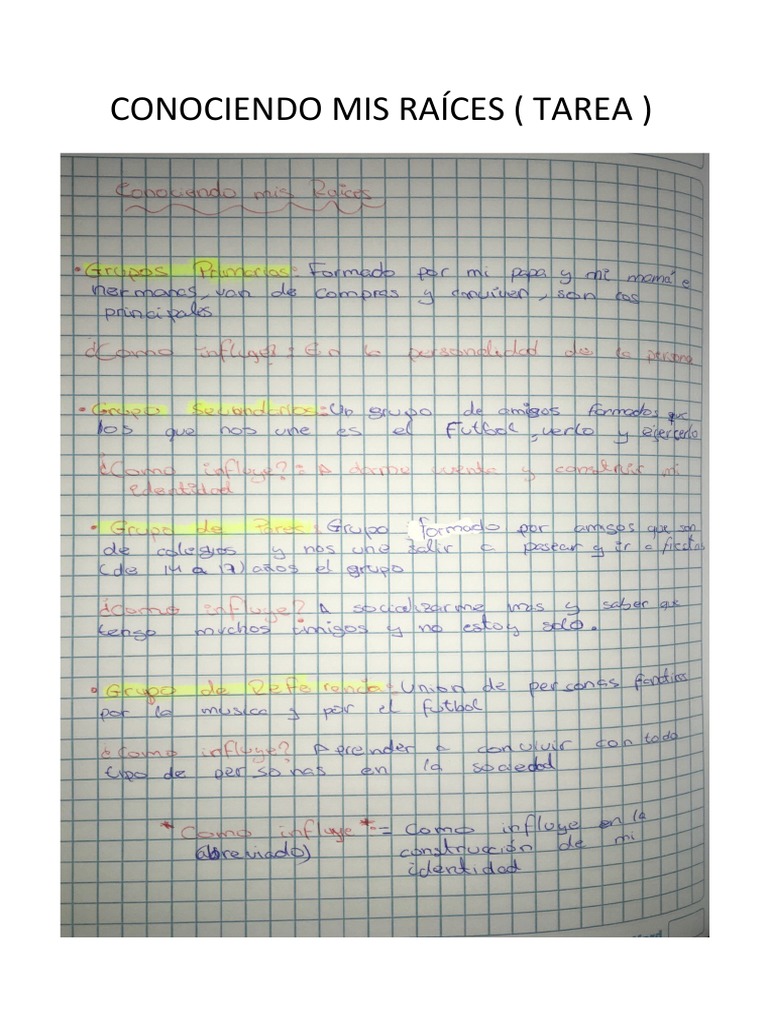 CONOCIENDO MIS RAÍCES ( TAREA )
Conociendo mis Raíces
• Grupos Primarios: Formado por mi papa y mi mamá e
hermanas, van de compras y conviven, son los
principales
¿Como influye? : En la personalidad de la persona
• Grupo Secundarios: Un grupo de amigos formados que
los que nos une es el futbol, verlo y ejercerlo
¿Como influye? : A darme cuenta y construir mi
identidad
• Grupo de Pares: Grupo formado por amigos que son
de colegios y nos une salir a pasear y ir a fiestas
(de 14 a 17) años el grupo
¿Como influye? A socializarme mas y saber que
tengo muchos amigos y no estoy solo.
• Grupo de Referencia: Union de personas fanaticas
por la musica y por el futbol
¿Como influye? Aprender a convivir con todo
tipo de personas en la sociedad
* Como influye * = Como influye en la
abreviado) construcción de mi
identidad